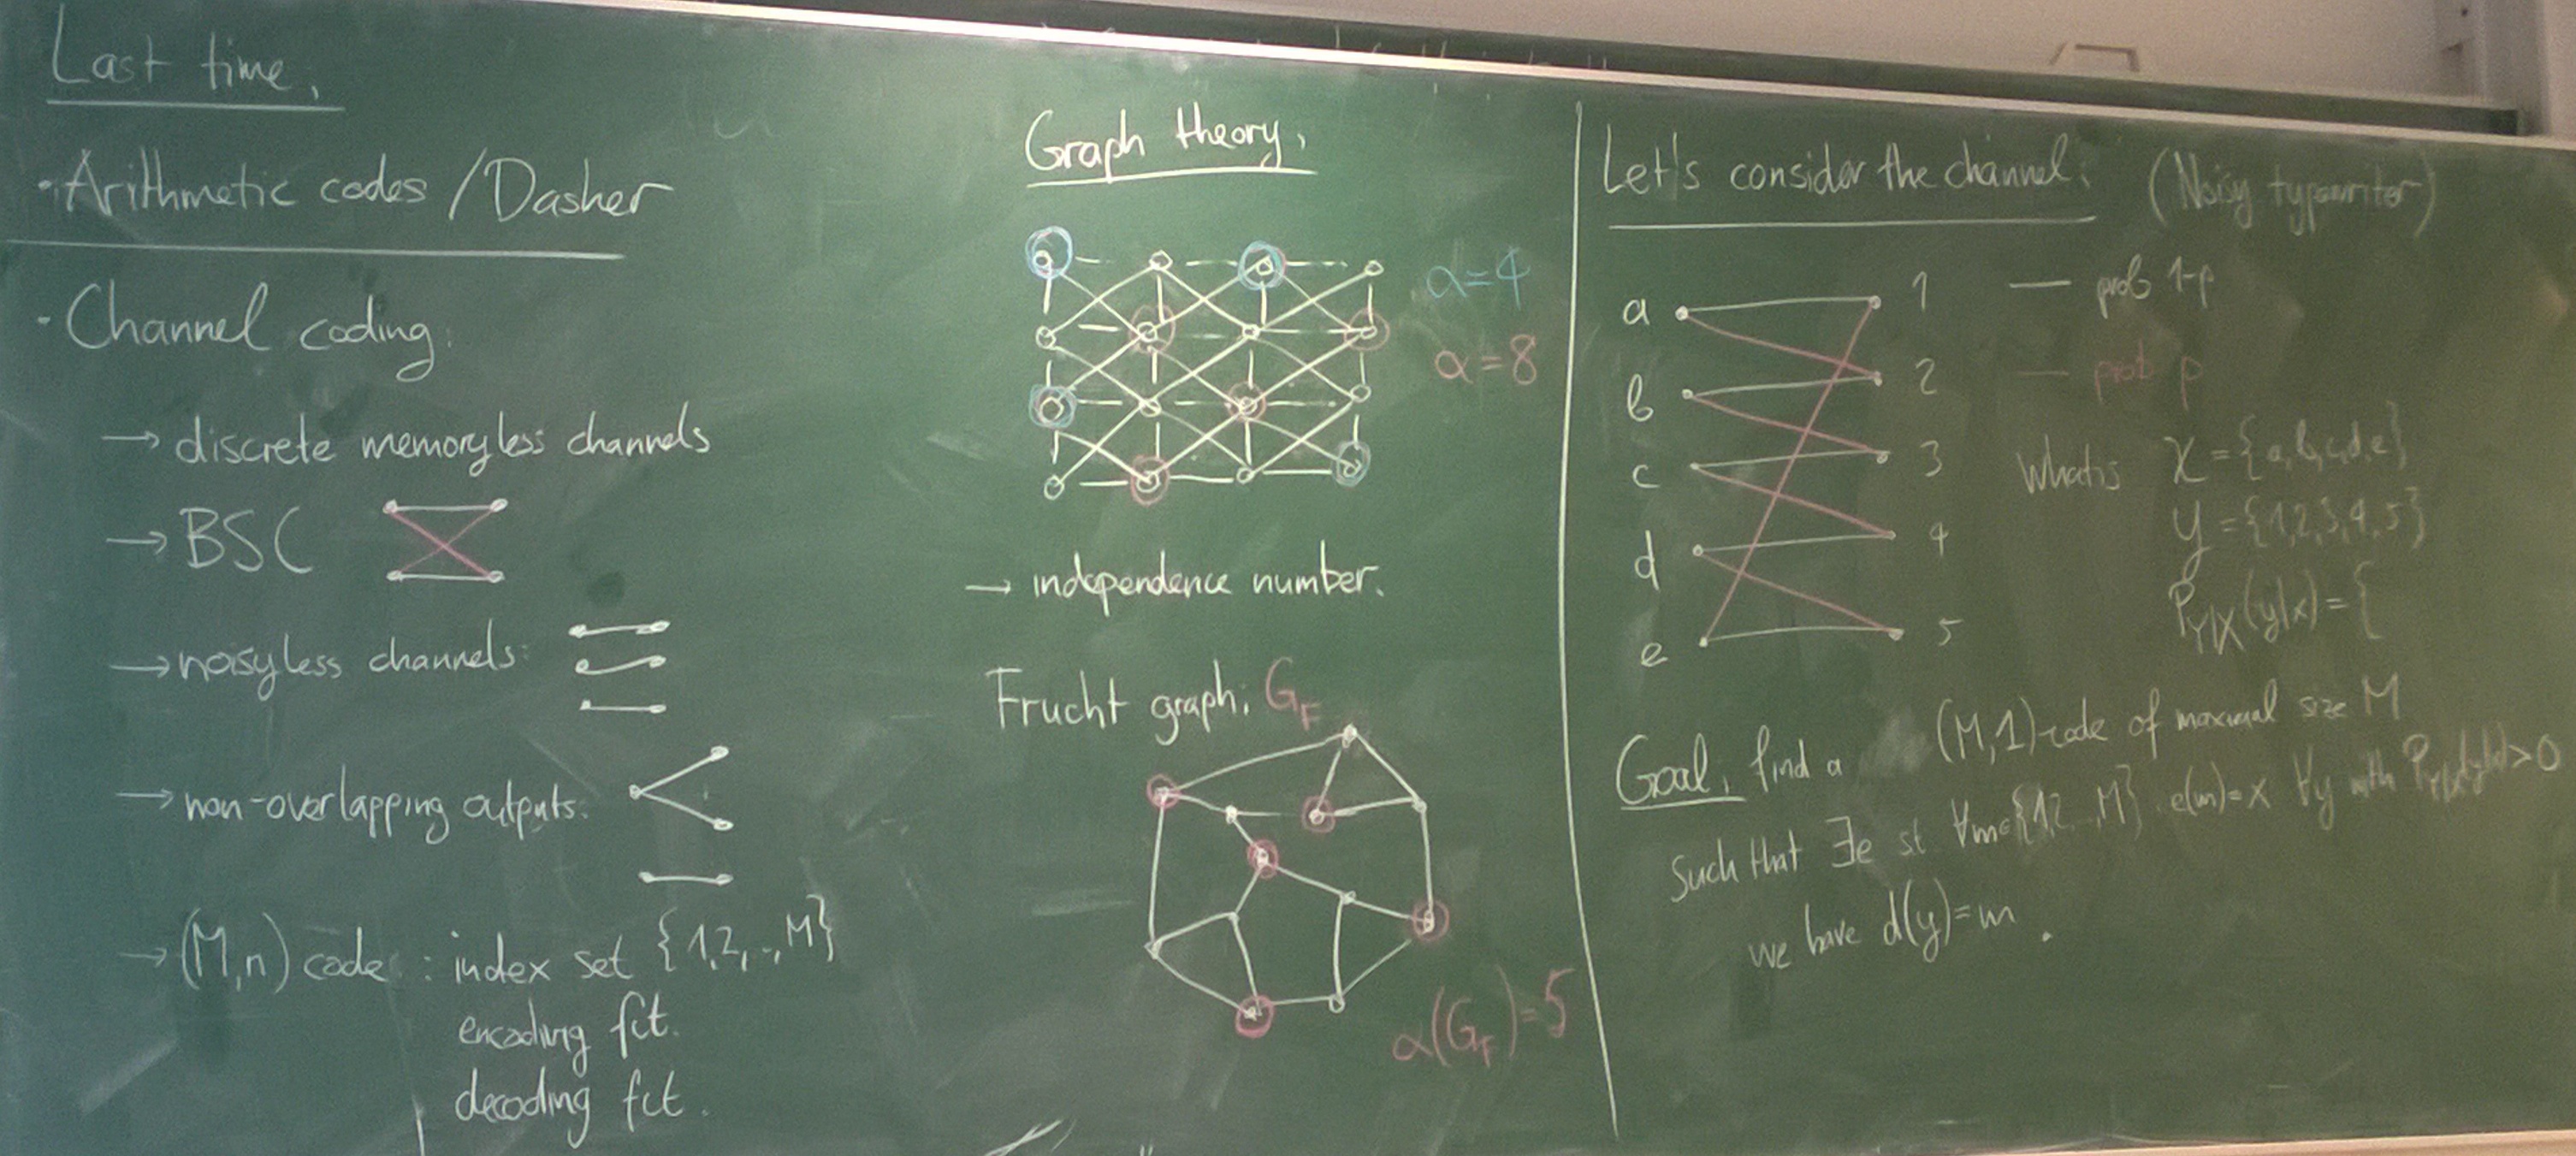 Last time,
· Arithmetic codes / Dasher
· Channel coding:
→ discrete memoryless channels
→ BSC
→ noisyless channels:
→ non-overlapping outputs:
→ (M,n) code : index set {1,2,..,M}
encoding fct.
decoding fct.
Graph theory,
α=4
α=8
→ independence number.
Frucht graph, G_F
α(G_F)=5
Let's consider the channel: (Noisy typewriter)
a
b
c
d
e
1
2
3
4
5
— prob 1-p
— prob p
What is X = {a,b,c,d,e}
Y = {1,2,3,4,5}
P_Y|X(y|x) = {
Goal, find a (M,1)-code of maximal size M
Such that ∃e st ∀m∈{1,2,..,M}, e(m)=x ∀y with P_Y|X(y|x)>0
we have d(y)=m.